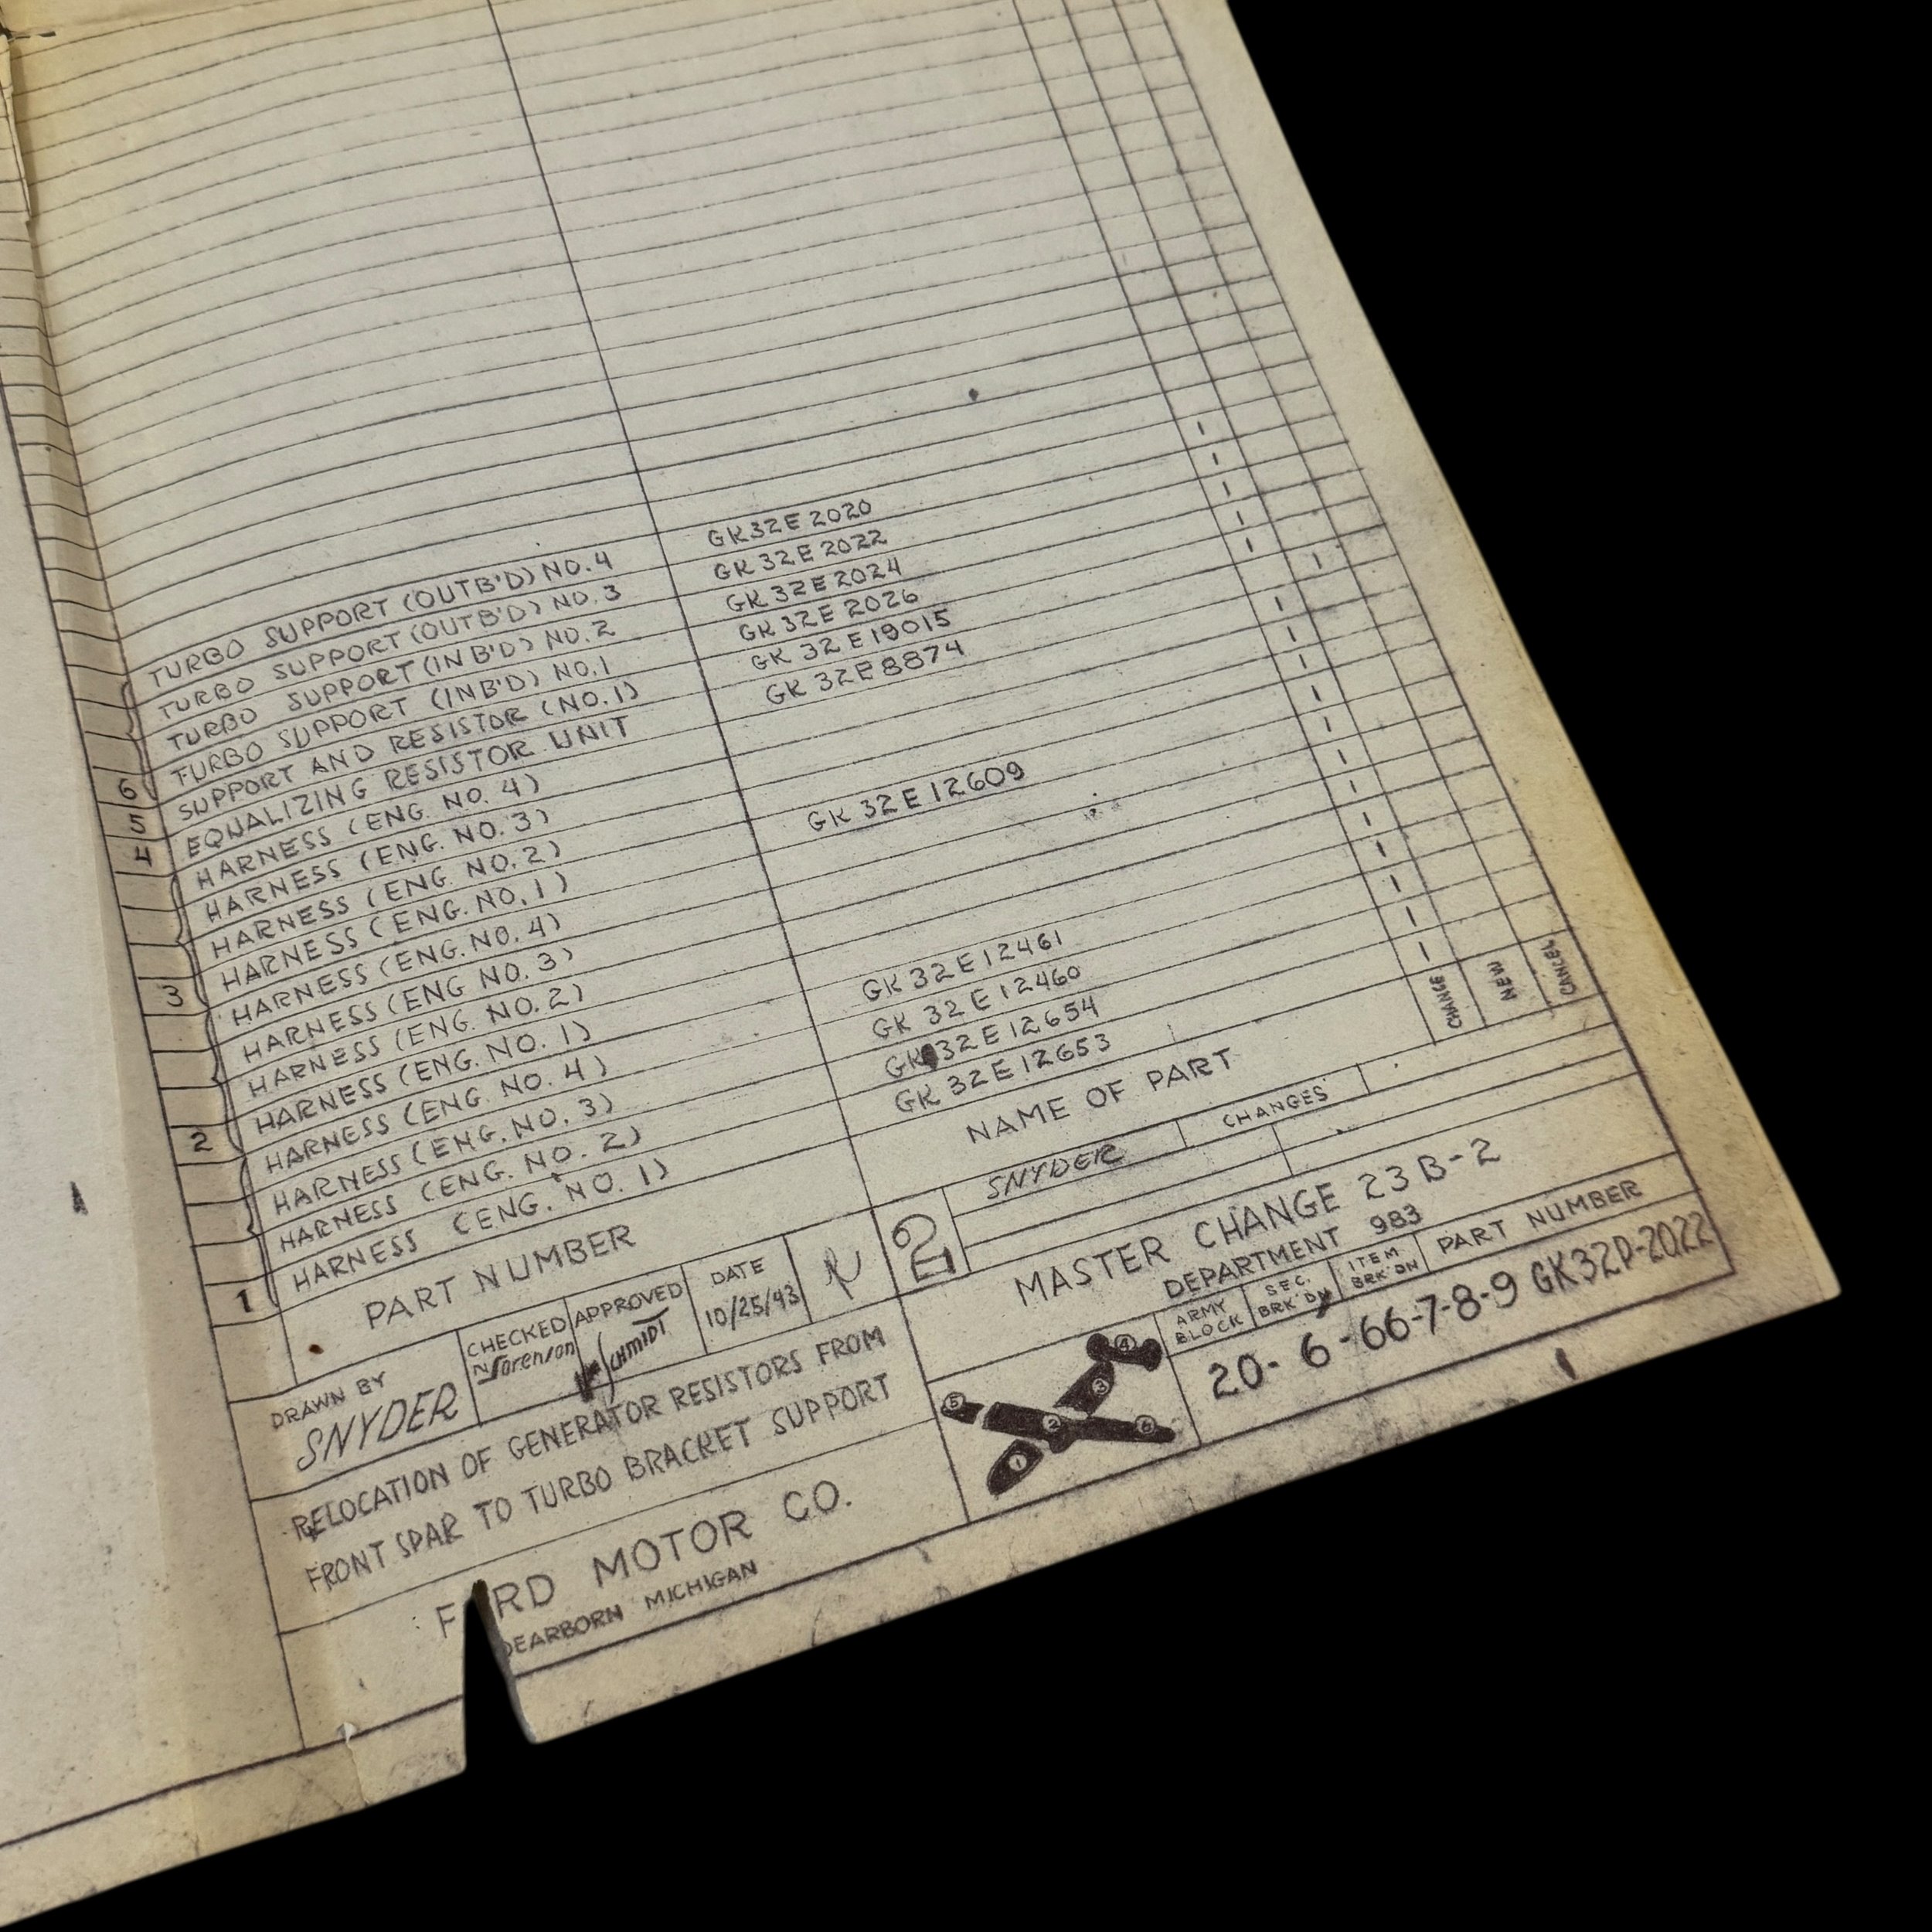 TURBO SUPPORT (OUTB'D) NO. 4 GK32E2020
TURBO SUPPORT (OUTB'D) NO. 3 GK32E2022
TURBO SUPPORT (INB'D) NO. 2 GK32E2024
6 TURBO SUPPORT (INB'D) NO. 1 GK32E2026
5 SUPPORT AND RESISTOR (NO. 1) GK32E19015
4 EQUALIZING RESISTOR UNIT GK32E8874
HARNESS (ENG. NO. 4)
HARNESS (ENG. NO. 3)
HARNESS (ENG. NO. 2)
3 HARNESS (ENG. NO. 1) GK32E12609
HARNESS (ENG. NO. 4)
HARNESS (ENG NO. 3)
HARNESS (ENG. NO. 2)
2 HARNESS (ENG. NO. 1)
HARNESS (ENG. NO. 4) GK32E12461
HARNESS (ENG. NO. 3) GK32E12460
HARNESS (ENG. NO. 2) GK32E12654
1 HARNESS (ENG. NO. 1) GK32E12653
PART NUMBER NAME OF PART CHANGE NEW CANCEL
DRAWN BY SNYDER
CHECKED N Sorenson
APPROVED Schmidt
DATE 10/25/43
2
SNYDER CHANGES
RELOCATION OF GENERATOR RESISTORS FROM
FRONT SPAR TO TURBO BRACKET SUPPORT
FORD MOTOR CO.
DEARBORN MICHIGAN
MASTER CHANGE 23B-2
DEPARTMENT 983
ARMY BLOCK SEC. BRK'DN ITEM BRK'DN PART NUMBER
20-6-66-7-8-9 GK32D-2022
1 2 3 4 5 6